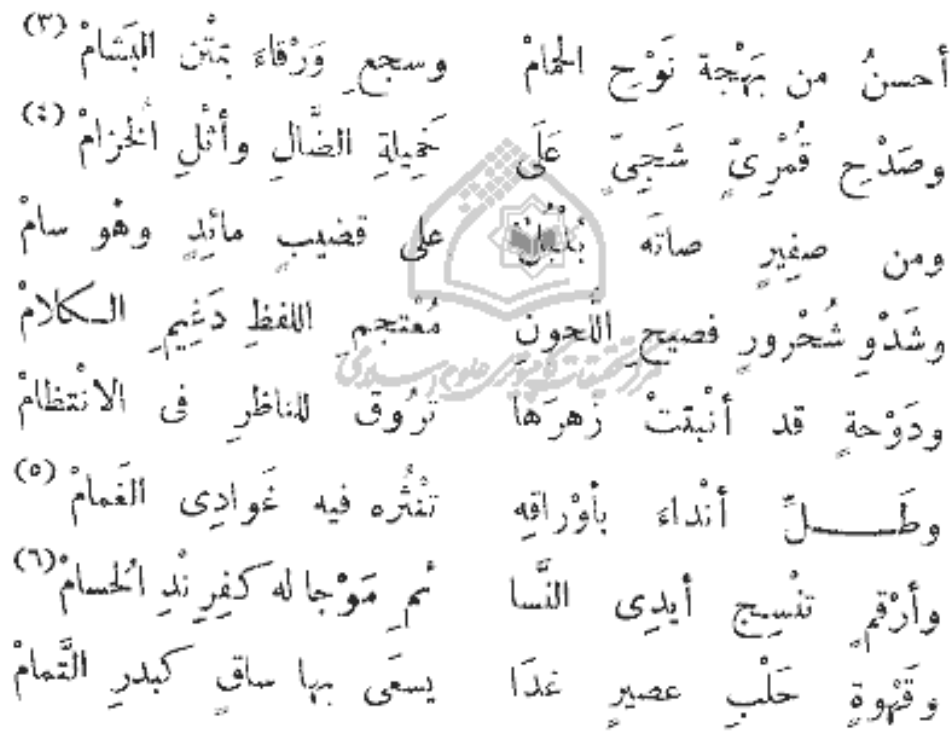 أحسنُ من بَهْجة نَوْحِ الحمامْ وسجعِ وَرْقاءَ بمَتْنِ البَشامْ (٣)
وصَدْحِ قُمْرِىٍّ شَجِىٍّ عَلَى خَمِيلةِ الضَّالِ وأثْلِ الْخزامْ (٤)
ومن صفِيرٍ صاتَه بُلْبُلٌ على قضيبٍ مائدٍ وهْو سامْ
وشَدْوِ شُحْرورٍ فصيحِ اللُّحونْ مُعْتجمِ اللفظِ دَغِيمِ الـكلامْ
ودَوْحةٍ قد أنْبتتْ زَهرَها تَرُوق للناظرِ فى الانْتظامْ
وطَـــلِّ أنْداءَ بأَوْراقِهِ تنْثُره فيه غَوادِى الغَمامْ (٥)
وأرْقمٍ تنْسِج أيدِى النَّسا ئمِ مَوْجا له كفِرِنْدِ الْحُسامْ (٦)
وقَهْوةٍ حَلْبِ عصيرٍ غدَا يسعَى بها ساقٍ كبدرِ التَّمامْ
مركز تحقیقات کامپیوتری علوم اسلامی